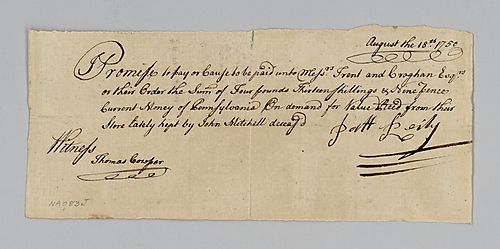 August the 18th 1750
I Promise to pay or Cause to be paid unto Messrs Trent and Croghan Esqrs
or their Order the Sum of Four pounds Thirteen shillings & Nine pence
Current Money of Pennsylvania On demand for Value Recd from their
Store lately kept by John Mitchell deceas'd
Witness
Thomas Cooper